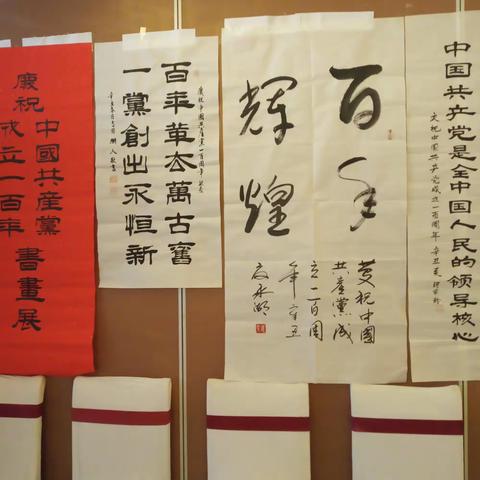 慶祝
中國共産黨
成立一百年
書畫展
慶祝中國共産黨一百周年
百年革去萬古舊
一黨創出永恒新
百年
輝煌
慶祝中國
共產黨成
立一百周
年辛丑
中国共产党是全中国人民的领导核心
庆祝中国共产党成立一百周年 辛丑夏